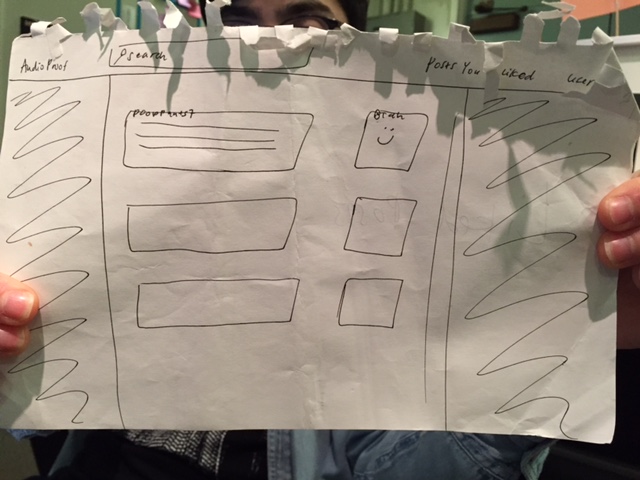 AudioProof search Posts You Liked user
pooppants7 Bitch